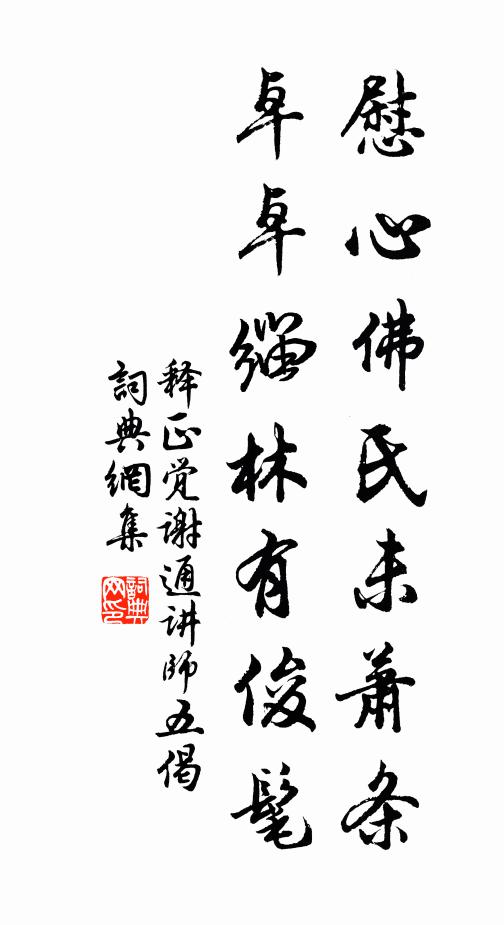 慰心佛氏未萧条
卓卓缁林有俊髦
释正觉谢通讲师五偈
詞典網集
詞典網印